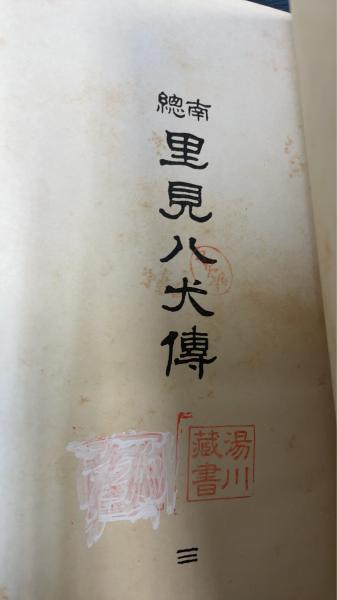 南總
里見八犬傳
湯川
藏書
三